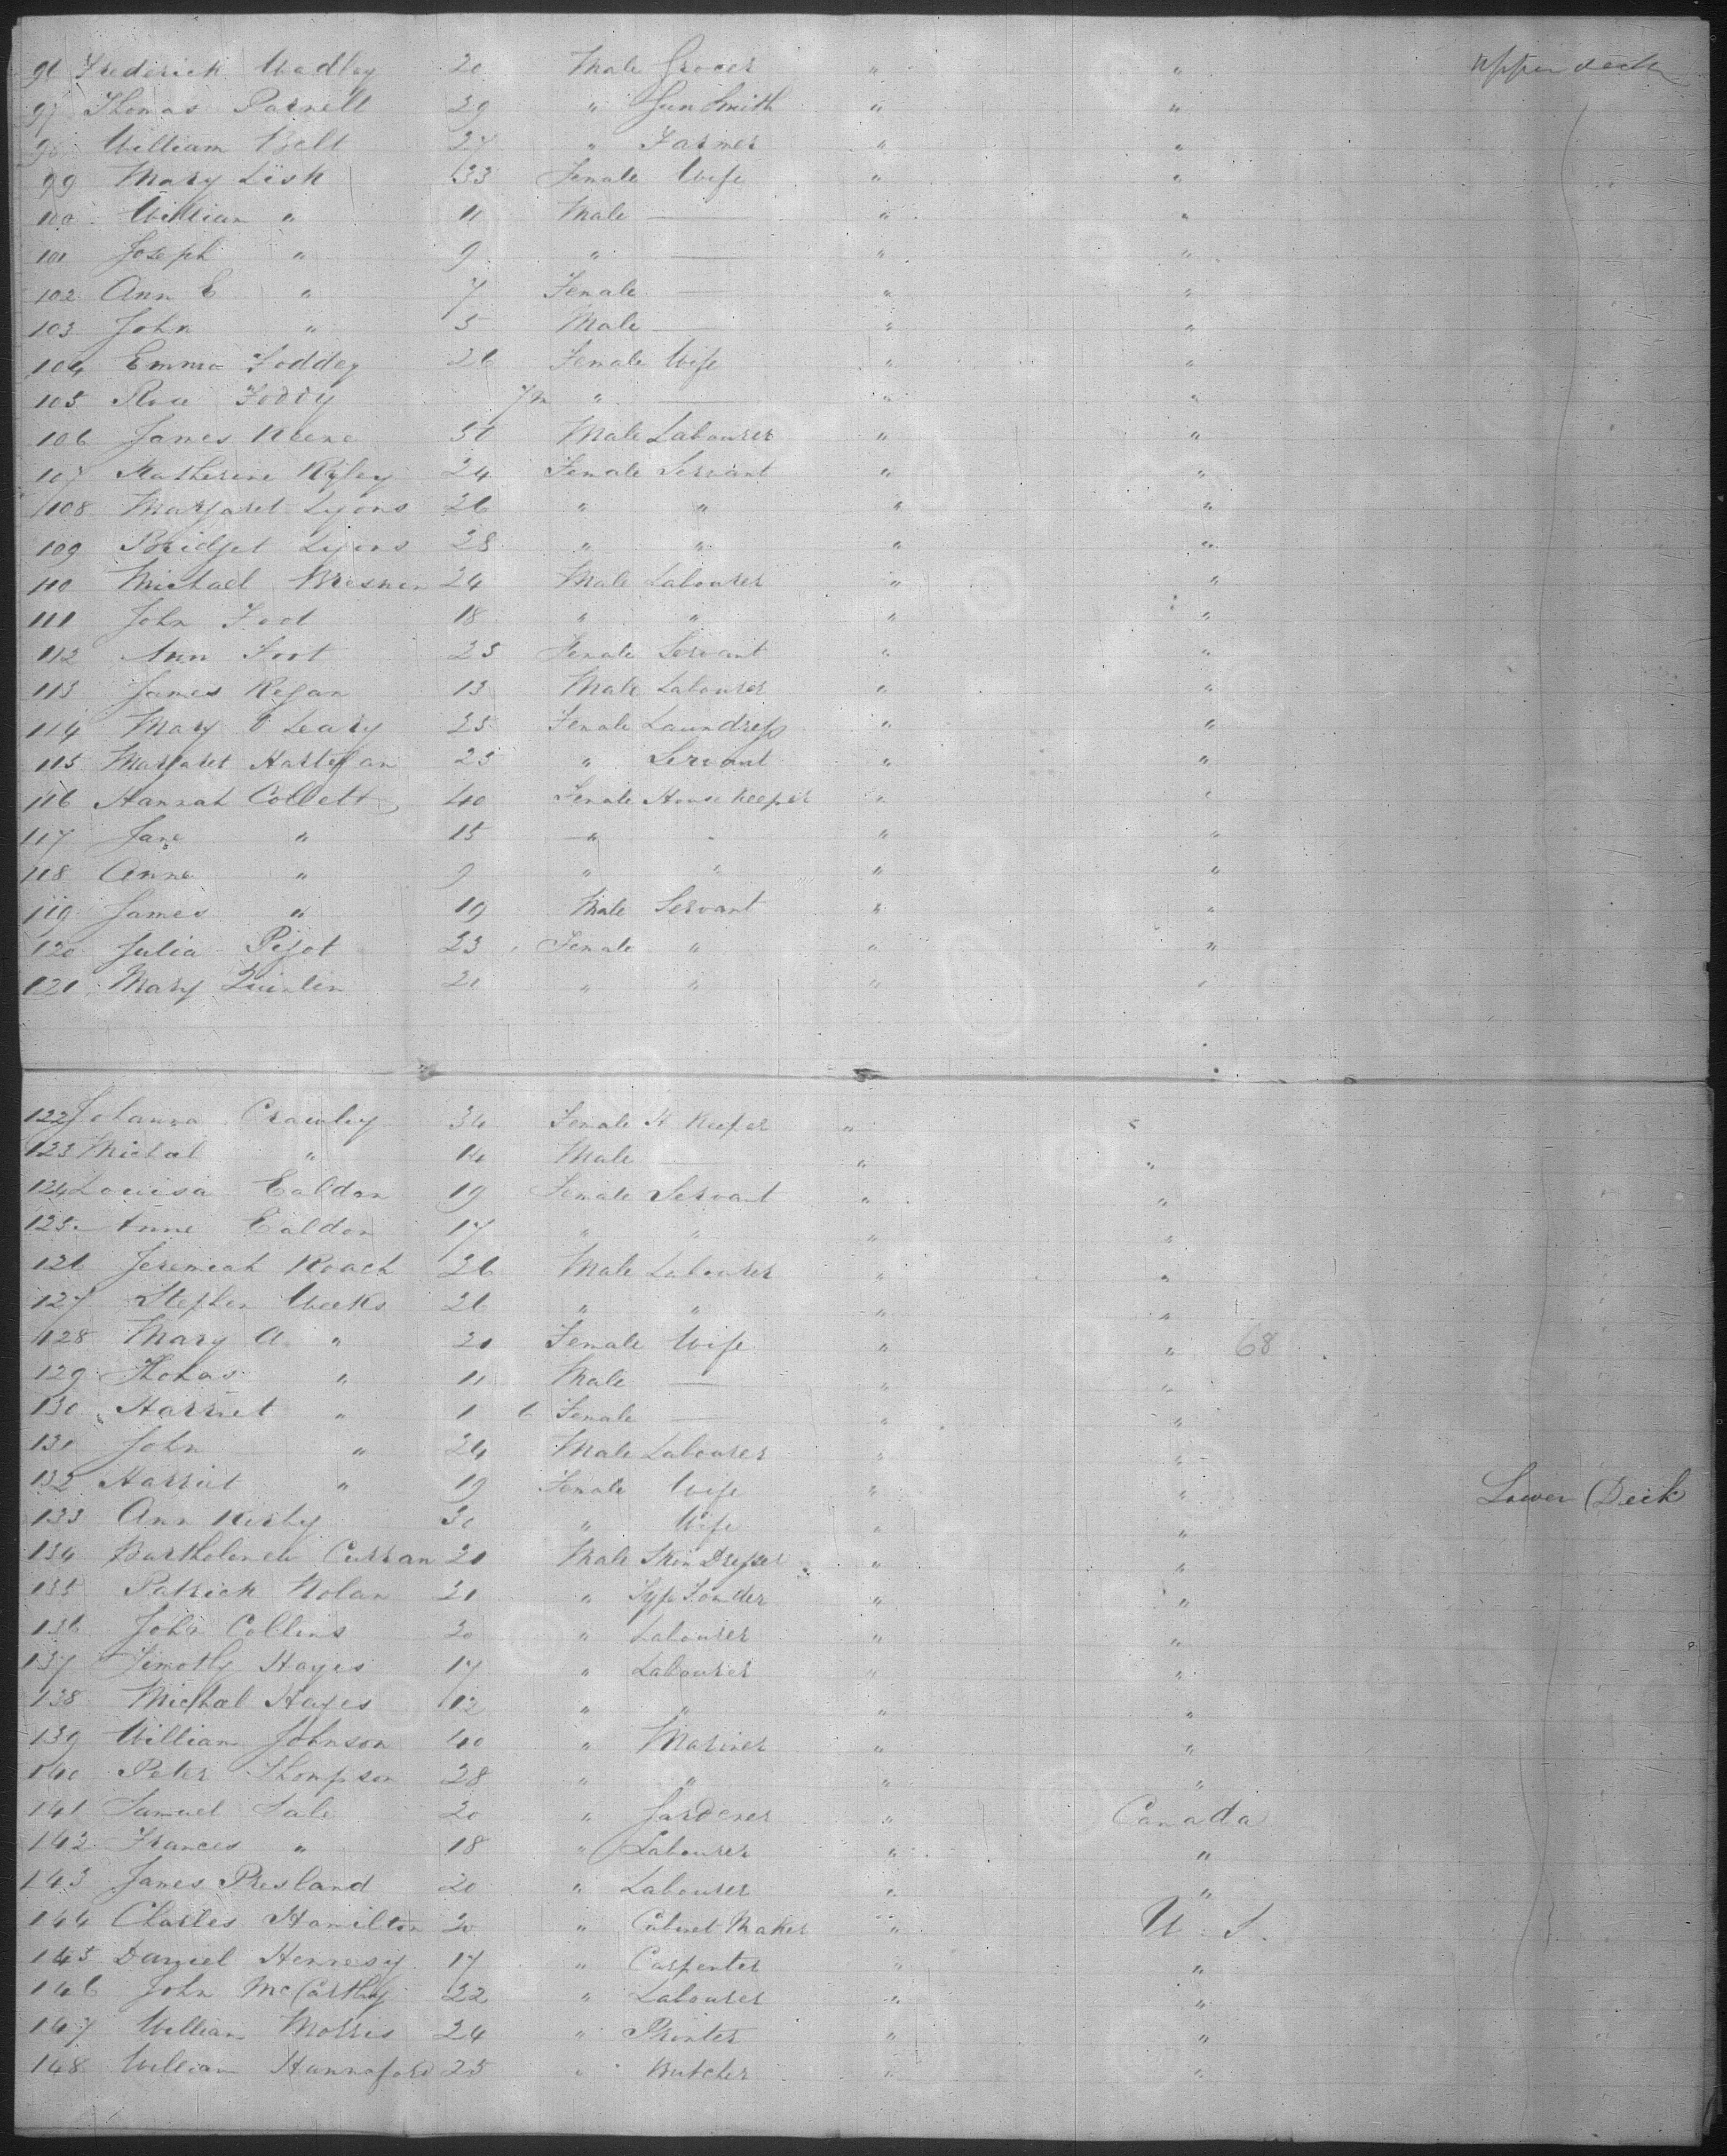 96 Frederick Wadley 20 Male Grocer " " Upper deck
97 Thomas Parnell 29 " Gun Smith " "
98 William Belt 27 " Farmer " "
99 Mary Lish 33 Female Wife " "
100 William " 11 Male — " "
101 Joseph " 9 " — " "
102 Ann E " 7 Female — " "
103 John " 5 Male — " "
104 Emma Foddey 26 Female Wife " "
105 Rose Foddy 7m " — " "
106 James Keene 36 Male Labourer " "
107 Katherine Ryley 24 Female Servant " "
108 Margaret Lyons 26 " " " "
109 Bridget Lyons 28 " " " "
110 Michael Bresnen 24 Male Labourer " "
111 John Foot 18 " " " "
112 Ann Foot 23 Female Servant " "
113 James Regan 13 Male Labourer " "
114 Mary O Leary 25 Female Laundress " "
115 Margaret Hartegan 23 " Servant " "
116 Hannah Collett 40 Female House Keeper " "
117 Jane " 15 " " " "
118 Anne " 9 " " " "
119 James " 19 Male Servant " "
120 Julia Pigot 23 Female " " "
121 Mary Quinlin 21 " " " "
122 Johanna Crawley 34 Female H Keeper " "
123 Michal " 14 Male — " "
124 Louisa Ealdon 19 Female Servant " "
125 Anne Ealdon 17 " " " "
126 Jeremiah Roach 26 Male Labourer " "
127 Stephen Weeks 26 " " " "
128 Mary A " 20 Female Wife " " 68
129 Thomas " 11 Male — " "
130 Harriet " 1 6 Female — " "
131 John " 24 Male Labourer " "
132 Harriet " 19 Female Wife " " Lower Deck
133 Ann Kirby 30 " Wife " "
134 Bartholomew Curran 21 Male Skin Dresser " "
135 Patrick Nolan 21 " Type Founder " "
136 John Collins 20 " Labourer " "
137 Timothy Hayes 17 " Labourer " "
138 Michal Hayes 12 " " " "
139 William Johnson 40 " Mariner " "
140 Peter Thompson 28 " " " "
141 Samuel Sale 20 " Gardener " Canada
142 Frances " 18 " Labourer " "
143 James Presland 20 " Labourer " "
144 Charles Hamilton 20 " Cabinet Maker " U S.
145 Daniel Hennesy 17 " Carpenter " "
146 John McCarthy 22 " Labourer " "
147 William Morris 24 " Printer " "
148 William Hannaford 25 " Butcher " "